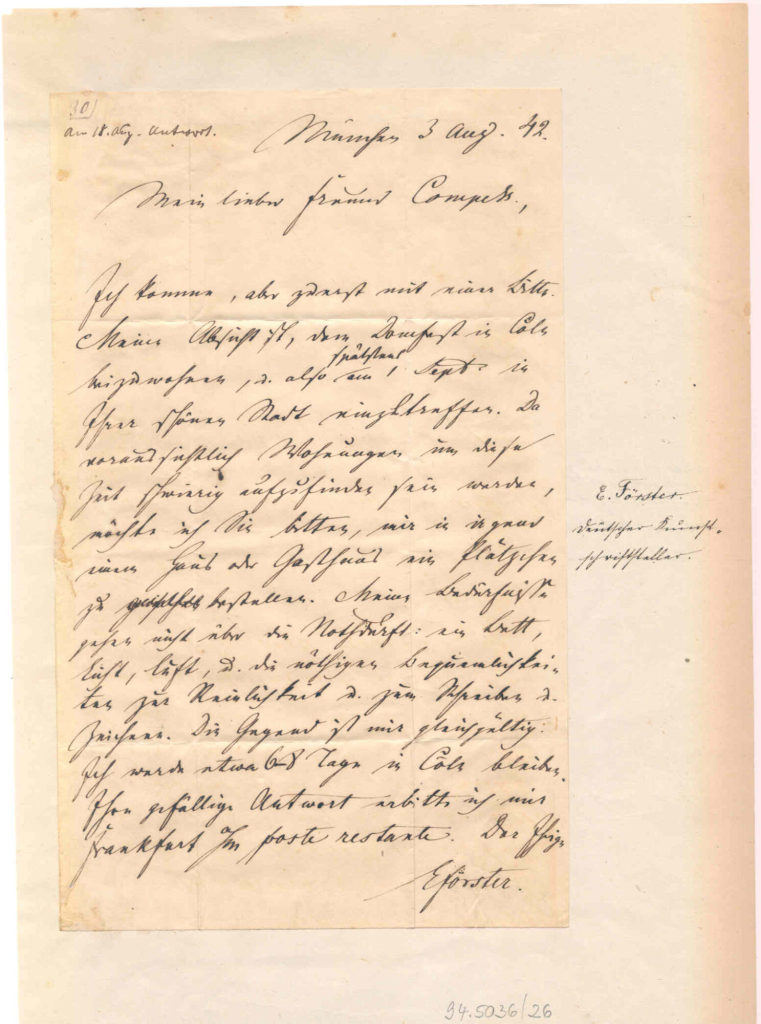 30)
Am 18. Aug. Antwort.
München 3 Aug. 42.
Mein lieber Freund Compes.,
Ich komme, aber zuerst mit einer Bitte.
Meine Absicht ist, dem Domfest in Cöln
beizuwohnen, u. also spätstens am 1 Sept. in
Ihrer schönen Stadt einzutreffen. Da
voraussichtlich Wohnungen um diese
Zeit schwierig aufzufinden sein werden,
möchte ich Sie bitten, mir in irgend
einem Haus oder Gasthaus ein Plätzchen
zu bestellen. Meine Bedürfnisse
gehen nicht über die Nothdurft: ein Bett,
Licht, Luft, u. die nöthigen Bequemlichkei-
ten zur Reinlichkeit u. zum Schreiben u.
Zeichnen. Die Gegend ist mir gleichgültig.
Ich werde etwa 6-8 Tage in Cöln bleiben.
Ihre gefällige Antwort erbitte ich mir
Frankfurt a/m poste restante. Der Ihrige
EFörster.
E. Förster.
deutscher Kunst-
schriftsteller.
94.5036/26